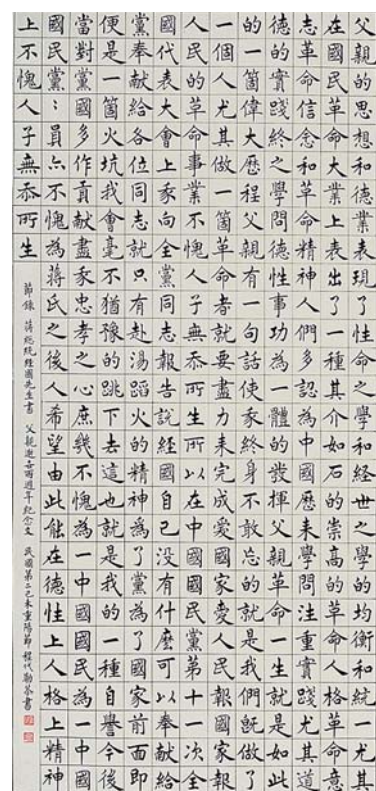 父親的思想和大業表現了性命之學和經世之學的均衡和統一尤其
在國民革命大業上表出了一種其介如石的崇高的革命人格革命意
志革命信念和革命精神人們多認為中國歷來學問注重實踐尤其道
德的實踐終之學問德性事功為一體的發揮父親革命一生就是如此
的一箇偉大歷程父親有一句話使豕終身不敢忘的就是我們既做了
一個人尤其做一箇革命者就要盡力來完成愛國家愛人民報國家報
人民的革命事業不愧人子無忝所生所以在中國國民黨第十一次全
國代表大會上豕向全黨同志報告說經國自己沒有什麼可以奉献給
黨奉献給各位同志就只有赴湯蹈火的精神為了黨為了國家前面即
便是一箇火坑我會毫不猶豫的跳下去這也就是我的一種自譽今後
當對黨國多作貢献盡豕忠孝之心庶幾不愧為一中國國民為一中國
國民黨黨員六不愧為蔣氏之後人希望由此能在德性上人格上精神
上不愧人子無忝所生
節錄 蔣總統經國先生書 父親逝世兩週年紀念文 民國第二己未重陽節 程代勒恭書